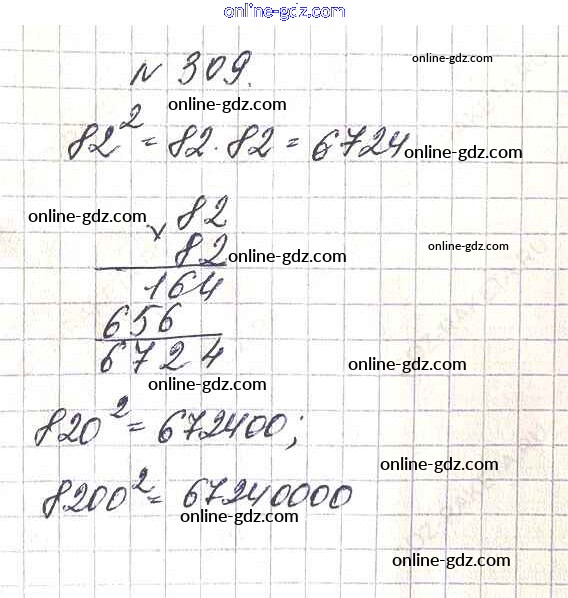 online-gdz.com
№ 309.
online-gdz.com
online-gdz.com
82² = 82 · 82 = 6724
online-gdz.com
online-gdz.com
× 82
82
online-gdz.com
online-gdz.com
164
656
6724
online-gdz.com
online-gdz.com
820² = 672400;
online-gdz.com
8200² = 67240000
online-gdz.com
online-gdz.com